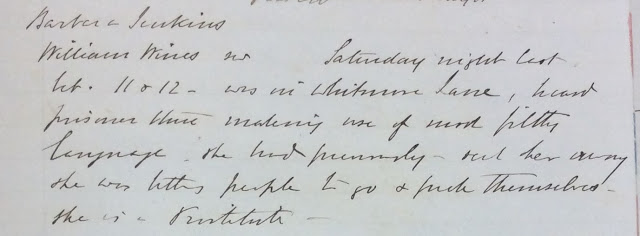 Barber & Jenkins
William Wines sw Saturday night last
bt. 11 & 12 - was in Whitmore Lane, heard
prisoner there making use of most filthy
language. she had previously - sent her away
she was telling people to go & fuck themselves -
she is a Prostitute -